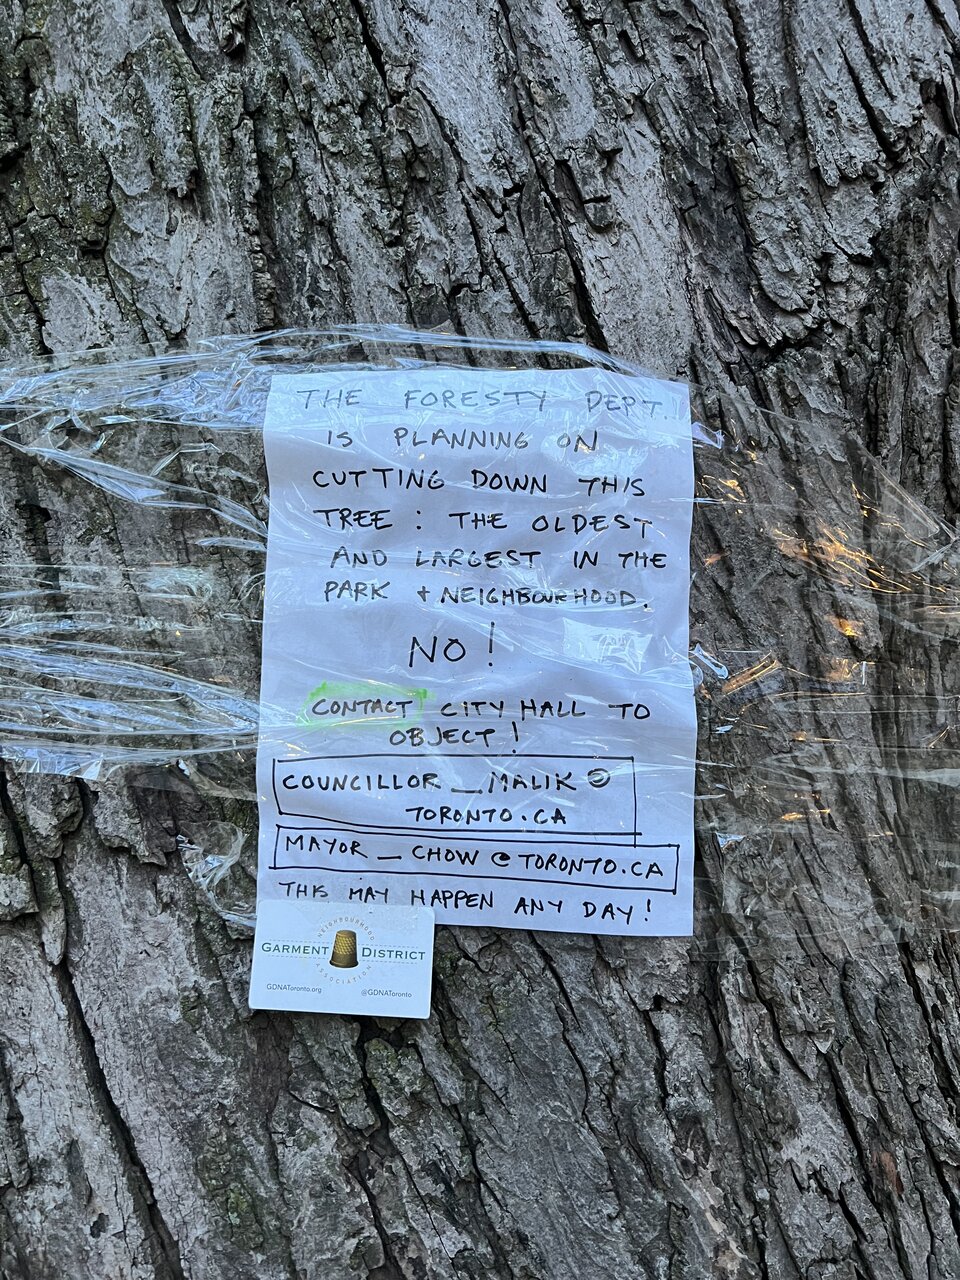 THE FORESTY DEPT.
IS PLANNING ON
CUTTING DOWN THIS
TREE : THE OLDEST
AND LARGEST IN THE
PARK + NEIGHBOURHOOD.
NO!
CONTACT CITY HALL TO
OBJECT!
COUNCILLOR _ MALIK @
TORONTO.CA
MAYOR _ CHOW @ TORONTO.CA
THIS MAY HAPPEN ANY DAY!
NEIGHBOURHOOD
GARMENT DISTRICT
ASSOCIATION
GDNAToronto.org @GDNAToronto